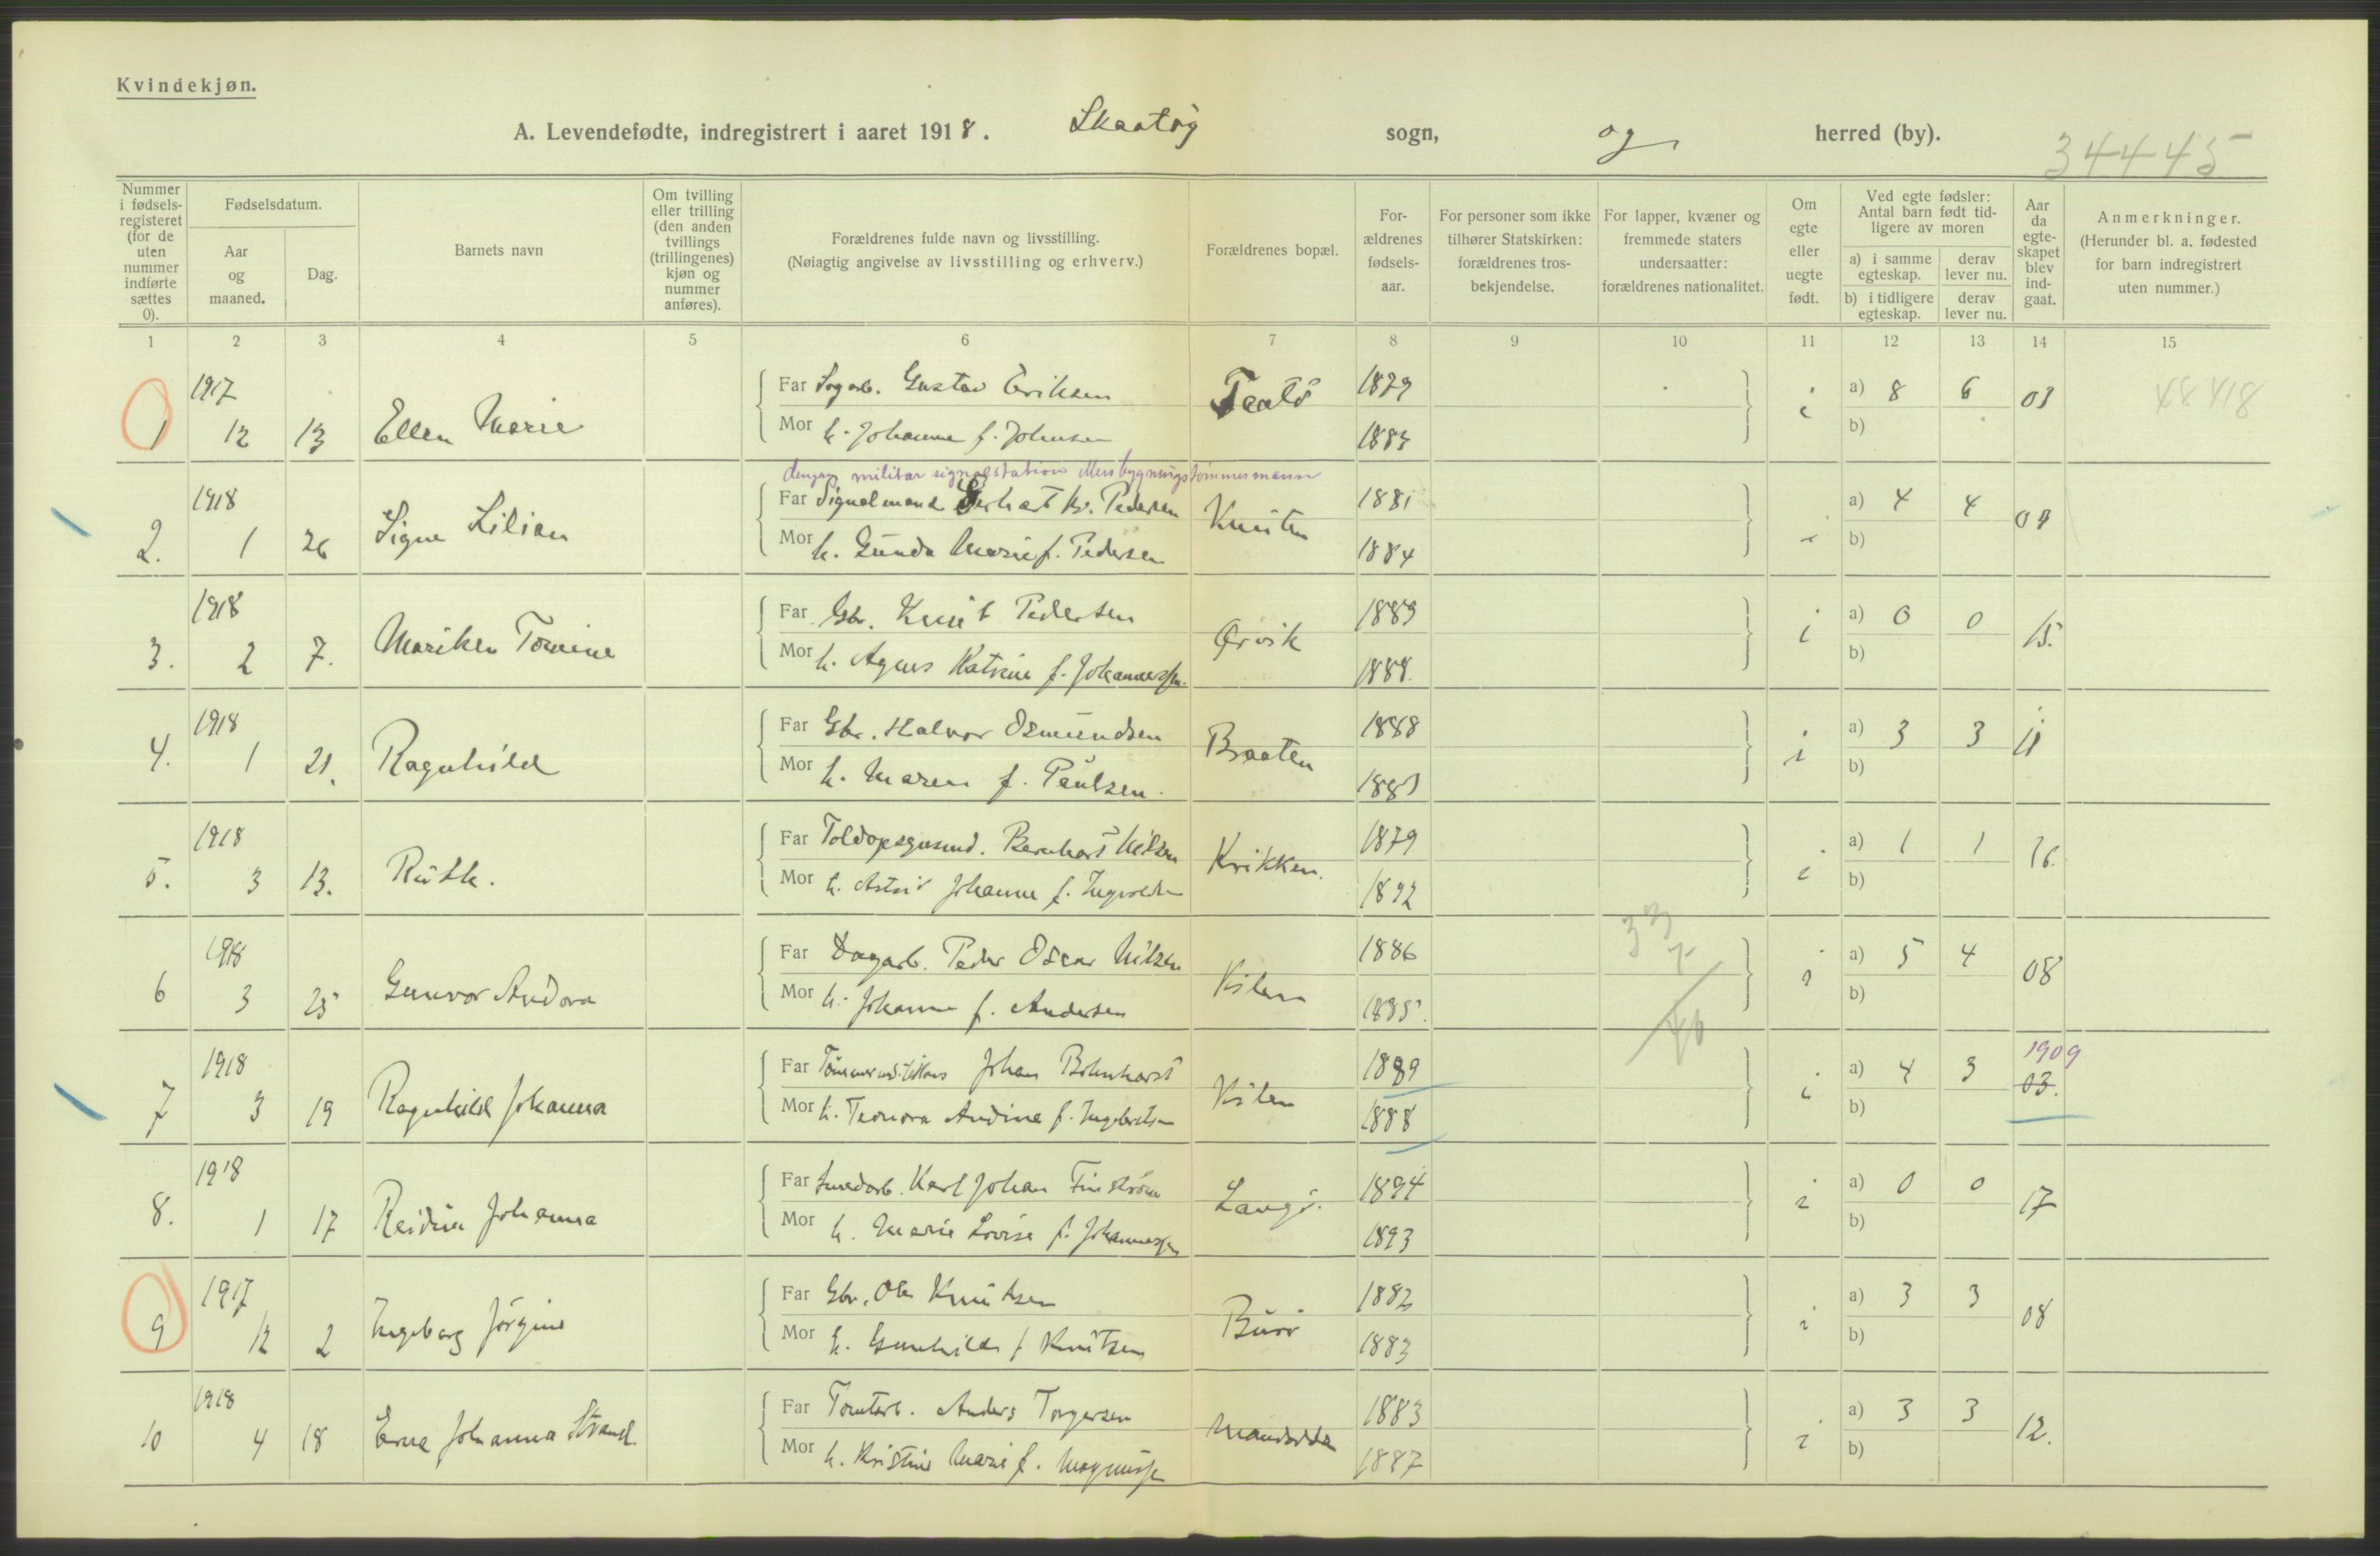 Kvindekjøn.
A. Levendefødte, indregistrert i aaret 1918. Skaatøy sogn, og herred (by).
34445
Nummer i fødsels-registeret (for de uten nummer indførte sættes 0).
Fødselsdatum.
Aar og maaned.
Dag.
Barnets navn
Om tvilling eller trilling (den anden tvillings (trillingenes) kjøn og nummer anføres).
Forældrenes fulde navn og livsstilling.
(Nøiagtig angivelse av livsstilling og erhverv.)
Forældrenes bopæl.
For-ældrenes fødsels-aar.
For personer som ikke tilhører Statskirken: forældrenes tros-bekjendelse.
For lapper, kvæner og fremmede staters undersaatter: forældrenes nationalitet.
Om egte eller uegte født.
Ved egte fødsler: Antal barn født tid-ligere av moren
a) i samme egteskap. derav lever nu.
b) i tidligere egteskap. derav lever nu.
Aar da egte-skapet blev ind-gaat.
Anmerkninger.
(Herunder bl. a. fødested for barn indregistrert uten nummer.)
1 2 3 4 5 6 7 8 9 10 11 12 13 14 15
1917 Far Gustav Eriksen 1879 a) 8 6 03
1 12 13 Ellen Marie Mor h. Johanne f. Johnsen 1883 b)
militær signalstation bygningstømmermann
1918 Far Signalmand Gerhart Kr. Pedersen 1881 a) 4 4 09
2. 1 26 Signe Lilian Mor h. Gunda Marie f. Pedersen 1884 b)
1918 Far Gbr. Knut Pedersen Ørvik 1889 i a) 0 0 15.
3. 2 7. Mariken Tomine Mor h. Agnes Katrine f. Johannessen. 1888. b)
1918 Far Gbr. Halvor Osmundsen Braaten 1888 i a) 3 3 11
4. 1 21. Ragnhild Mor h. Maren f. Paulsen. b)
1918 Far Toldopsynsmd. Bernhart Nilsen Krikken. 1879 i a) 1 1 16.
5. 3 13. Ruth. Mor h. Astrid Johanne f. Ingvoldsen 1892 b)
1918 Far Dagarb. Peder Oscar Nilsen Kilen 1886 i a) 5 4 08
6 3 25 Gunvor Andora Mor h. Johanne f. Andersen 1885. b)
1918 Far Johan Bernhart Kilen 1889 i a) 4 3 1909 03.
7 3 19 Ragnhild Johanna Mor h. Teonora Andine f. Ingebretsen 1888 b)
1918 Far Karl Johan Finstrøm Langø. 1894 i a) 0 0 17
8. 1 17 Reidun Johanna Mor h. Marie Lovise f. Johannessen 1893 b)
1917 Far Gbr. Ole Knutsen Burø 1882 i a) 3 3 08
9 12 2 Ingeborg Jørgine Mor h. Gunhild f Knutsen 1883 b)
1918 Far Tomtarb. Anders Torgersen 1883 i a) 3 3 12.
10 4 18 Erna Johanna Strand Mor h. Kristine Marie f. Magnussen 1887 b)